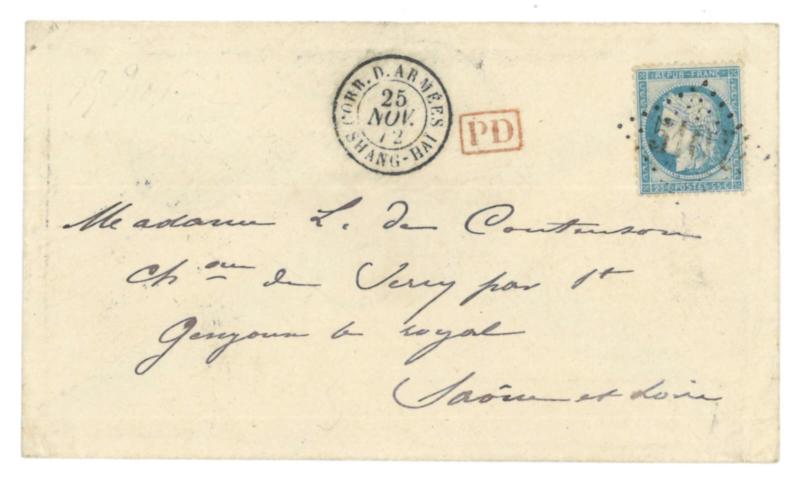 CORR. D. ARMÉES
25
NOV.
72
SHANG-HAI
PD
REPUB. FRANC.
25 c. POSTES 25 c.
Madame L. de Contenson
Ch au de Sercy par St
Gengoux le royal
Saône et Loire